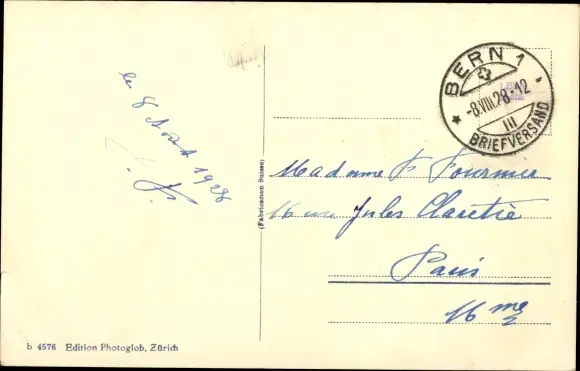 le 8 Août 1928
BERN 1
-8.VIII.28.-12
III
BRIEFVERSAND
(Fabrication Suisse)
Madame F. Fournier
16 rue Jules Claretie
Paris
16me
b 4576 Edition Photoglob, Zürich